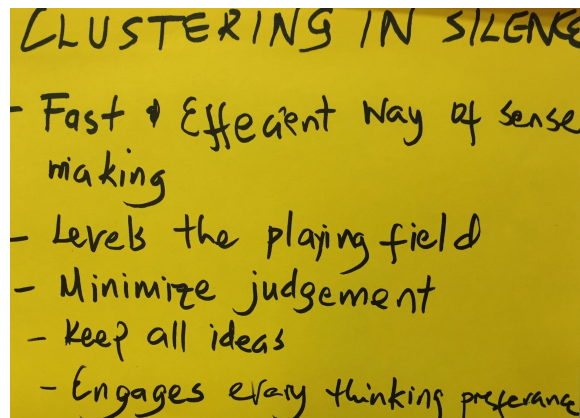 CLUSTERING IN SILENCE
- Fast & Effecient Way of sense
making
- Levels the playing field
- Minimize judgement
- Keep all ideas
- Engages every thinking preferance